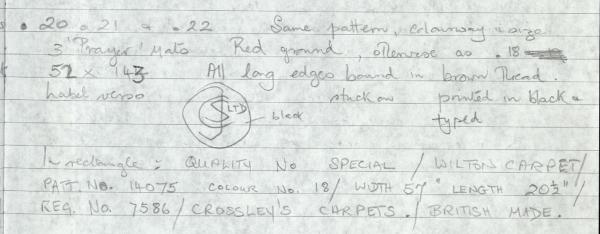 . 20 . 21 & . 22 Same pattern, colourway & size
3 'Prayer' Mats Red ground, otherwise as .18
52 x 143 All long edges bound in brown thread.
Label verso stuck on printed in black &
LTD black typed
In rectangle : QUALITY No SPECIAL / WILTON CARPET /
PATT. No. 14075 COLOUR No. 18 / WIDTH 57" LENGTH 20½" /
REG. No. 7586 / CROSSLEY'S CARPETS. / BRITISH MADE.